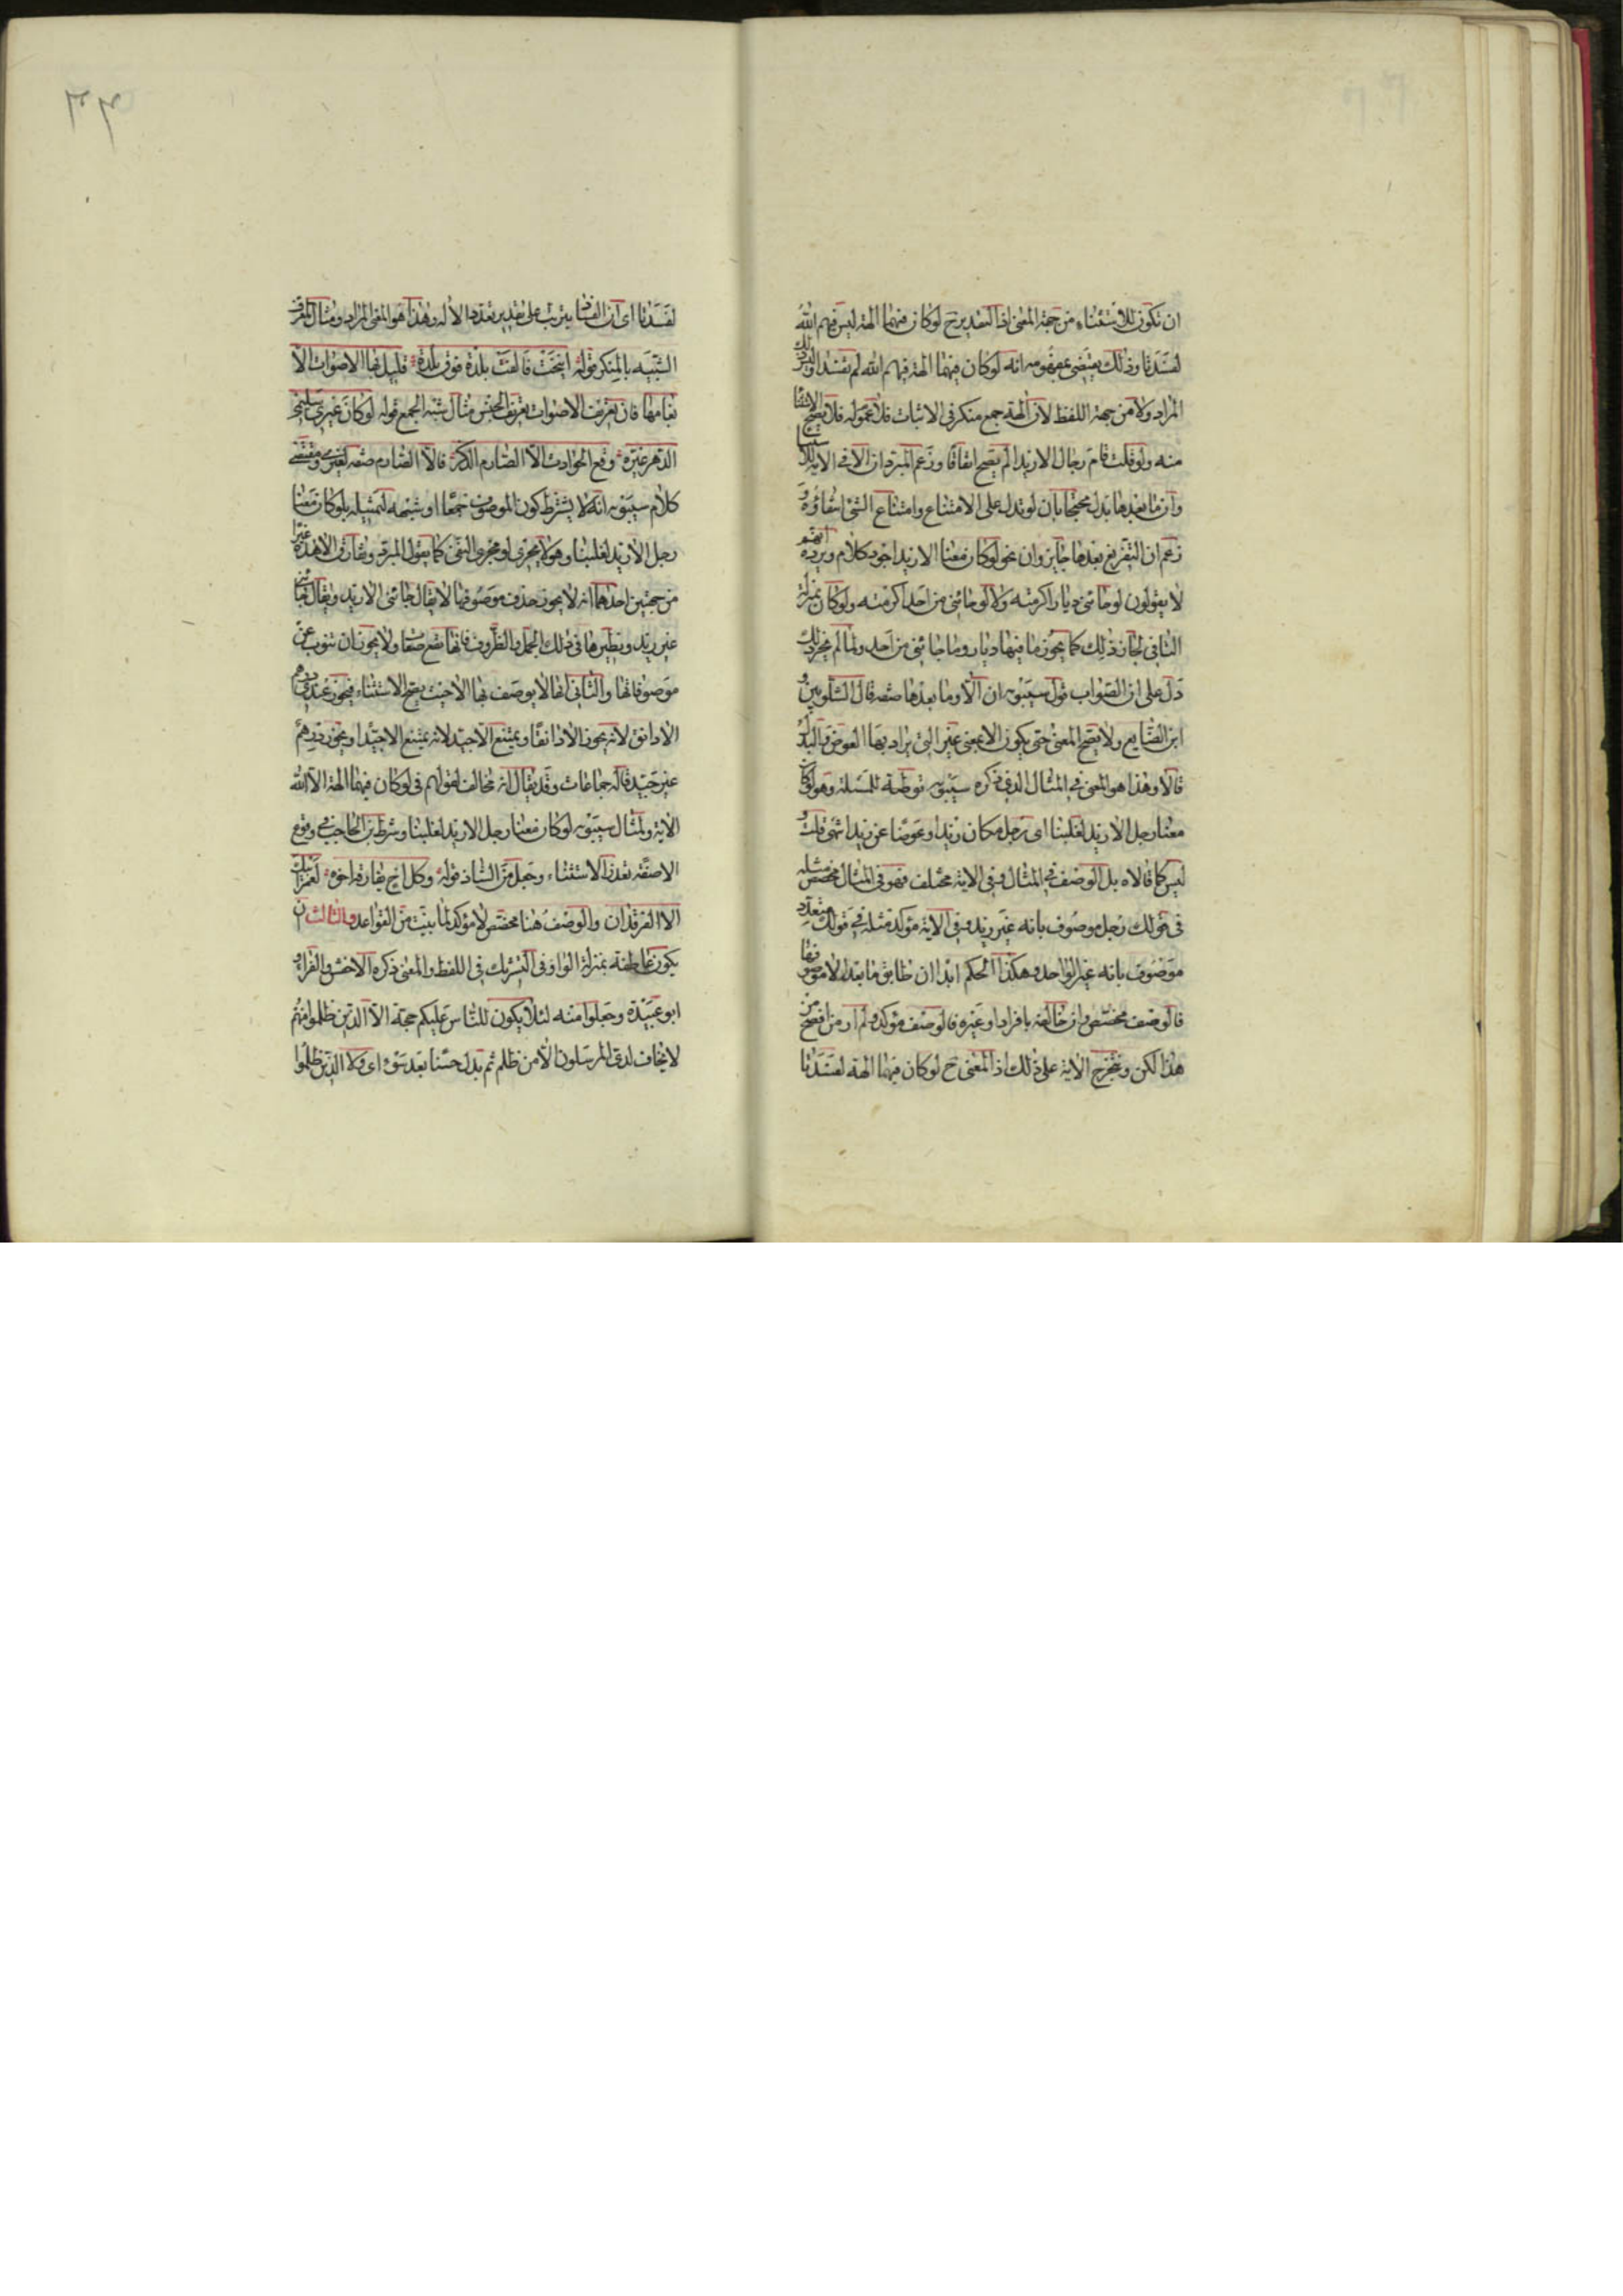 ان تكون للاستثناء من جهة المعنى اذ التقدير ح لو كان فيهما الهة ليس فيهم الله
لفسدتا وذلك يقتضى بمفهومه انه لو كان فيهما الهة فيهم الله لم تفسدا وليس ذلك
المراد ولا من جهة اللفظ لان الهة جمع منكر فى الاثبات فلا عموم له فلا يصح الاستثناء
منه ولو قلت قام رجال الا زيدا لم يصح اتفاقا وزعم المبرد ان الا فى الاية للاستثناء
وان ما بعدها بدل محتجا بان لو تدل على الامتناع وامتناع الشئ انتفاؤه و
زعم ان التفريغ بعدها جايز وان نحو لو كان معنا الا زيد اجود كلام ويرده انهم
لا يقولون لو جائنى ديار اكرمته ولا لو جائنى من احد اكرمته ولو كان بمنزلة
النافى لجاز ذلك كما يجوز ما فيها ديار وما جائنى من احد ولما لم يجز ذلك
دل على ان الصواب قول سيبويه ان الا وما بعدها صفه قال الشلوبين و
ابن الضايع ولا يصح المعنى حتى يكون الا بمعنى غير التى يراد بها العوض والبدل
قالا وهذا هو المعنى فى المثال الذى ذكره سيبويه توطئة للمسئلة وهو لو كان
معنا رجل الا زيد لغلبنا اى رجل مكان زيد او عوضا عن زيد انتهى قلت و
ليس كما قالاه بل الوصف فى المثال وفى الاية مختلف فهو فى المثال مخصص مثله
فى قولك رجل موصوف بانه غير زيد وفى الاية مؤكد مثله فى قولك متعدد
موصوف بانه غير الواحد وهكذا الحكم ابدا ان طابق ما بعد الا موصوفها
فالوصف مخصص وان خالفه بافراد او غيره فالوصف مؤكد ولم ار من افصح عن
هذا لكن وتخرج الاية على ذلك اذ المعنى ح لو كان فيهما الهة لفسدتا
لفسدتا اى ان الفساد يترتب على تقدير تعدد الاله وهذا هو المعنى المراد ومثال المعرف
الشبيه بالمنكر قوله انيخت فالقت بلدة فوق بلدة قليل بها الاصوات الا
بغامها فان تعريف الاصوات تعريف الجنس مثال شبه الجمع قوله لو كان غيرى سليمى
الدهر غيره وقع الحوادث الا الصارم الذكر فالا الصارم صفه لغيرى ومقتضى
كلام سيبويه انه لا يشترط كون الموصوف جمعا او شبهه لتمثيله بلو كان معنا
رجل الا زيد لغلبنا وهو لا يجرى لو مجرى النفى كما يقول المبرد وتفارق الا هذه غيرا
من جهتين احدهما انه لا يجوز حذف موصوفها لا يقال جائنى الا زيد ويقال جائنى
غير زيد ونظيرها فى ذلك الجمل والظروف فانها تقع صفات ولا يجوز ان تنوب عن
موصوفاتها والثانى انها لا يوصف بها الا حيث يصح الاستثناء فيجوز عندى درهم
الا دانق لانه يجوز الا دانقا ويمتنع الا جيد لانه يمتنع الا جيدا ويجوز درهم
غير جيد قاله جماعات وقد يقال انه مخالف لقولهم فى لو كان فيهما الهة الا الله
الاية ولمثال سيبويه لو كان معنا رجل الا زيد لغلبنا وشرط ابن الحاجب فى وقوع
الا صفه تعذر الاستثناء وجعل من الشاذ قوله وكل اخ مفارقه اخوه لعمر ابيك
الا الفرقدان والوصف هنا مخصص لا مؤكد لما بينت من القواعد والثالث ان
يكون عاطفة بمنزلة الواو فى التشريك فى اللفظ والمعنى ذكره الاخفش والفراء و
ابو عبيدة وجعلوا منه لئلا يكون للناس عليكم حجة الا الذين ظلموا منهم
لا يخاف لدى المرسلون الا من ظلم ثم بدل حسنا بعد سوء اى ولا الذين ظلموا